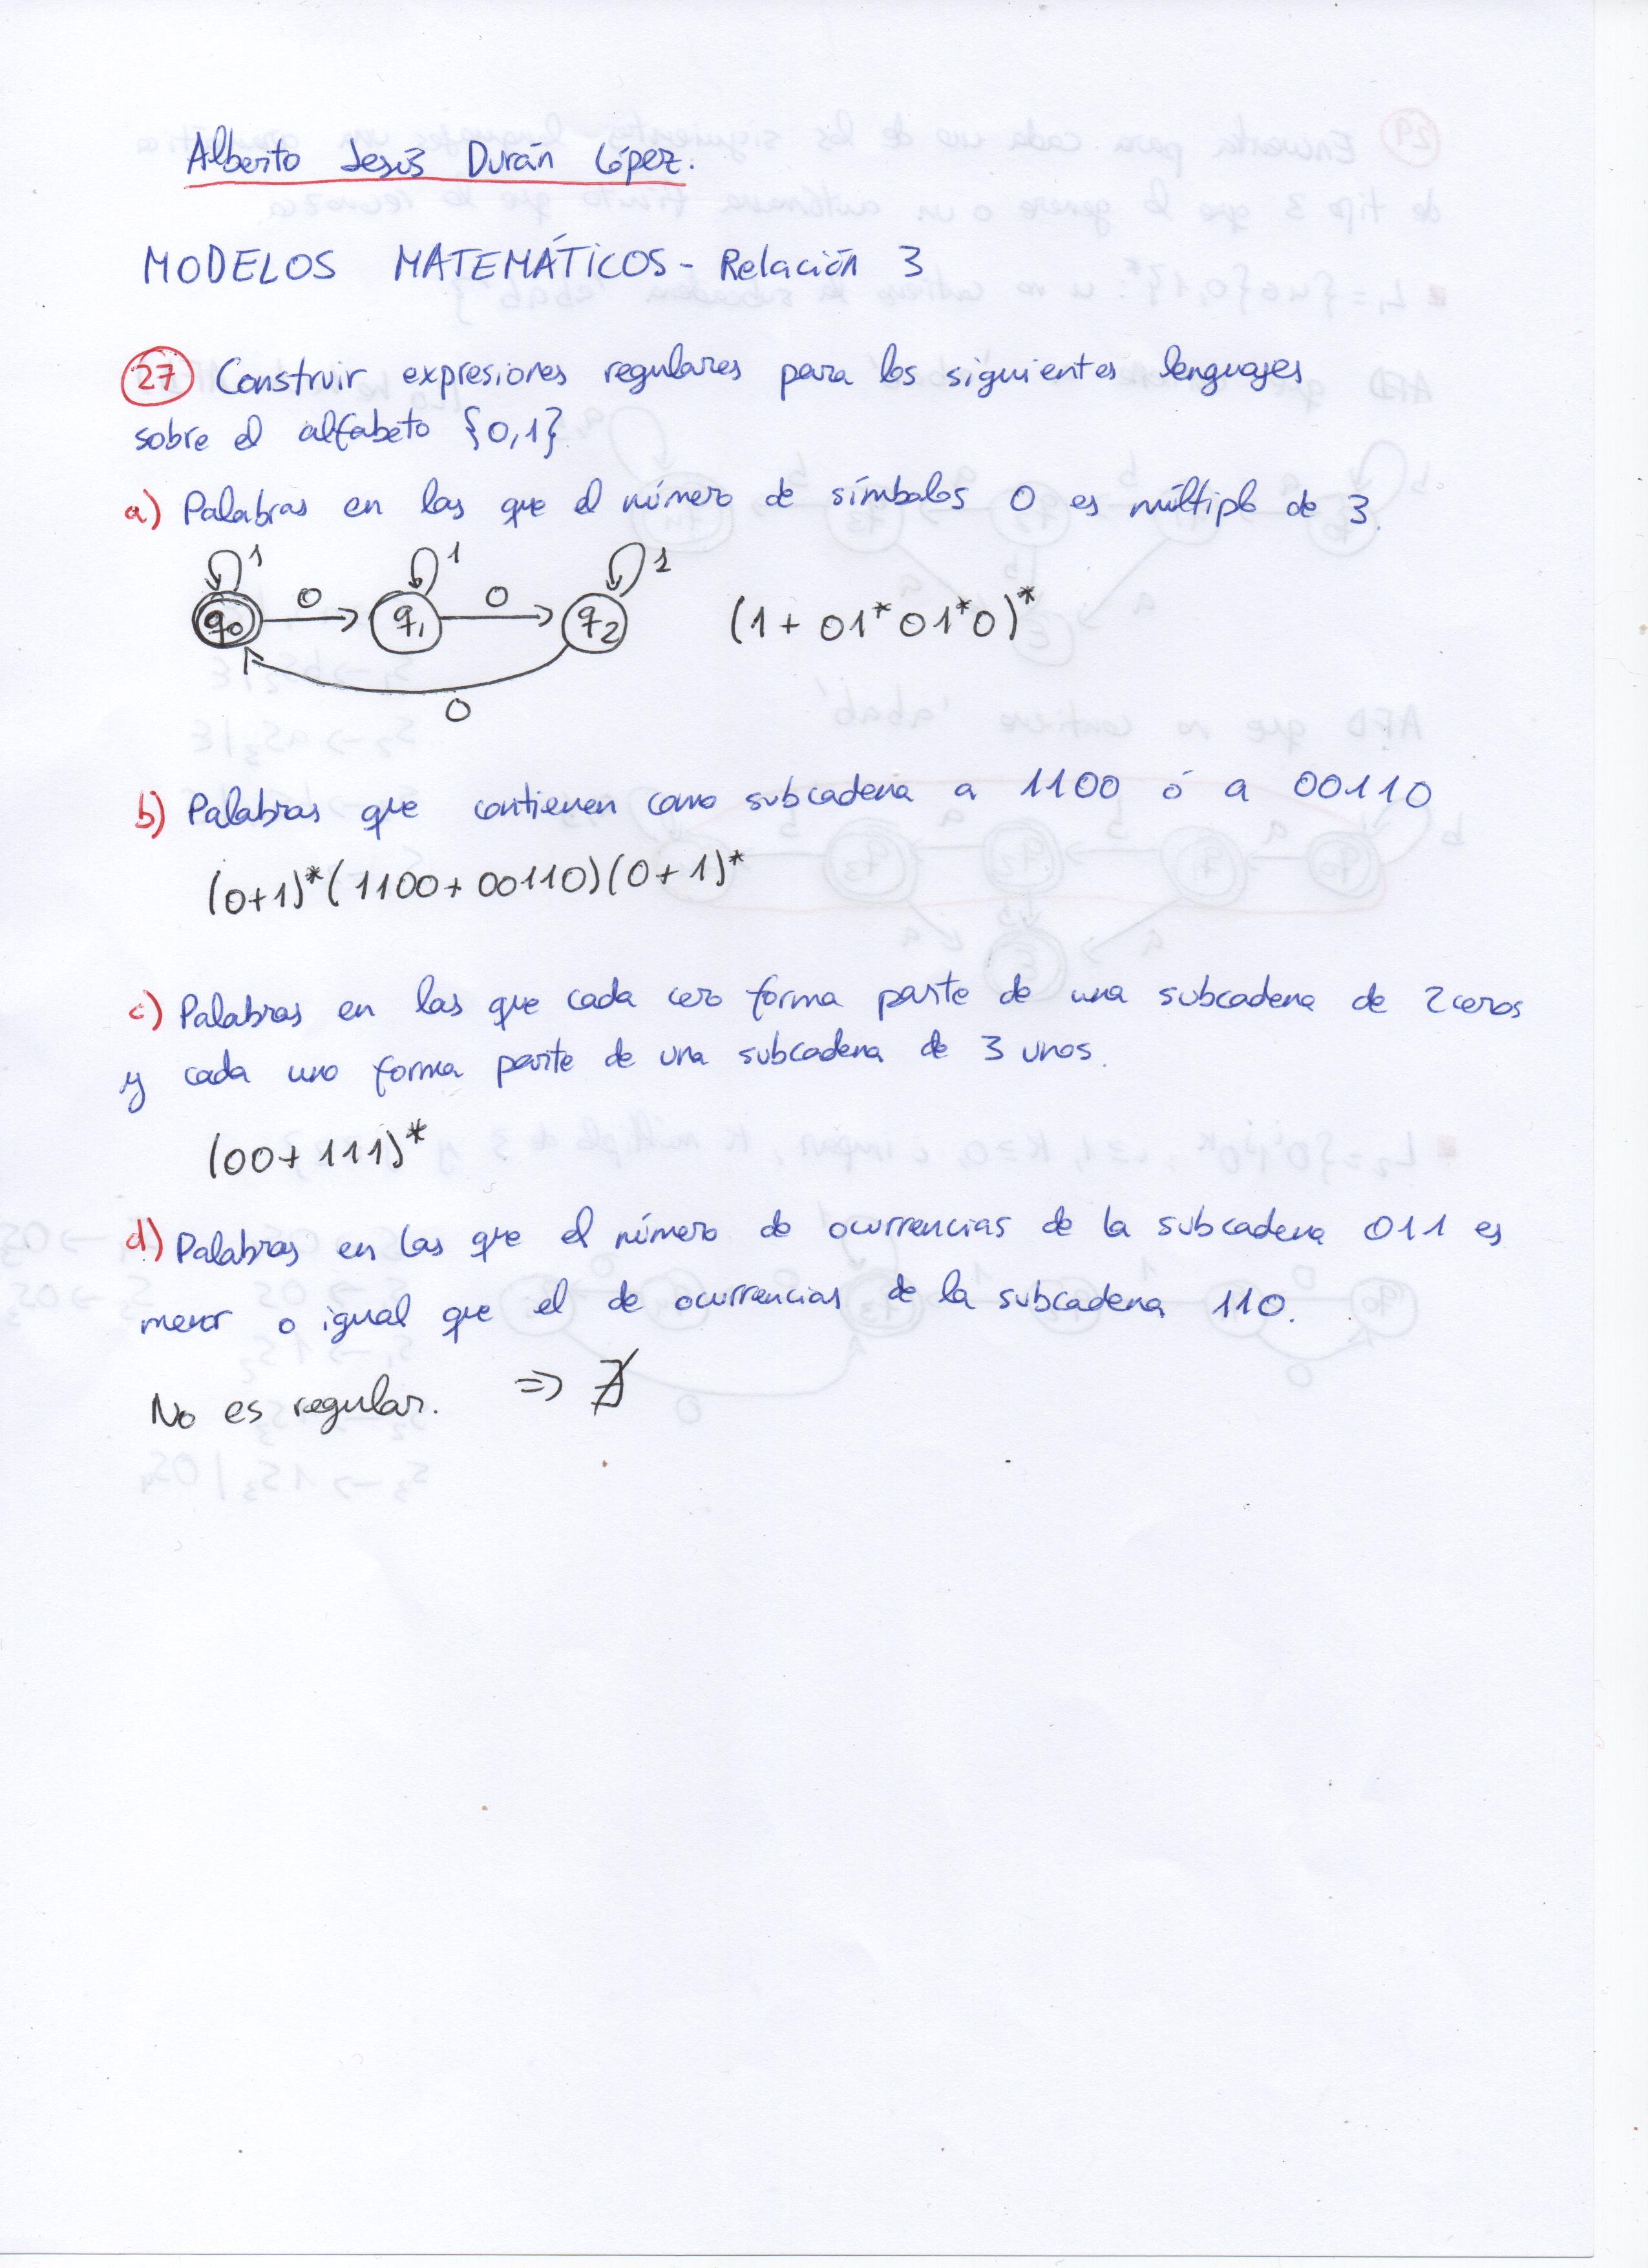 Alberto Jesús Durán López.
MODELOS MATEMÁTICOS - Relación 3
27 Construir expresiones regulares para los siguientes lenguajes
sobre el alfabeto {0,1}
a) Palabras en las que el número de símbolos 0 es múltiplo de 3.
1 1 1
q0 0 q1 0 q2 (1 + 01*01*0)*
0
b) Palabras que contienen como subcadena a 1100 ó a 00110
(0+1)*(1100+00110)(0+1)*
c) Palabras en las que cada cero forma parte de una subcadena de 2 ceros
y cada uno forma parte de una subcadena de 3 unos.
(00+111)*
d) Palabras en las que el número de ocurrencias de la subcadena 011 es
menor o igual que el de ocurrencias de la subcadena 110.
No es regular. => ∄